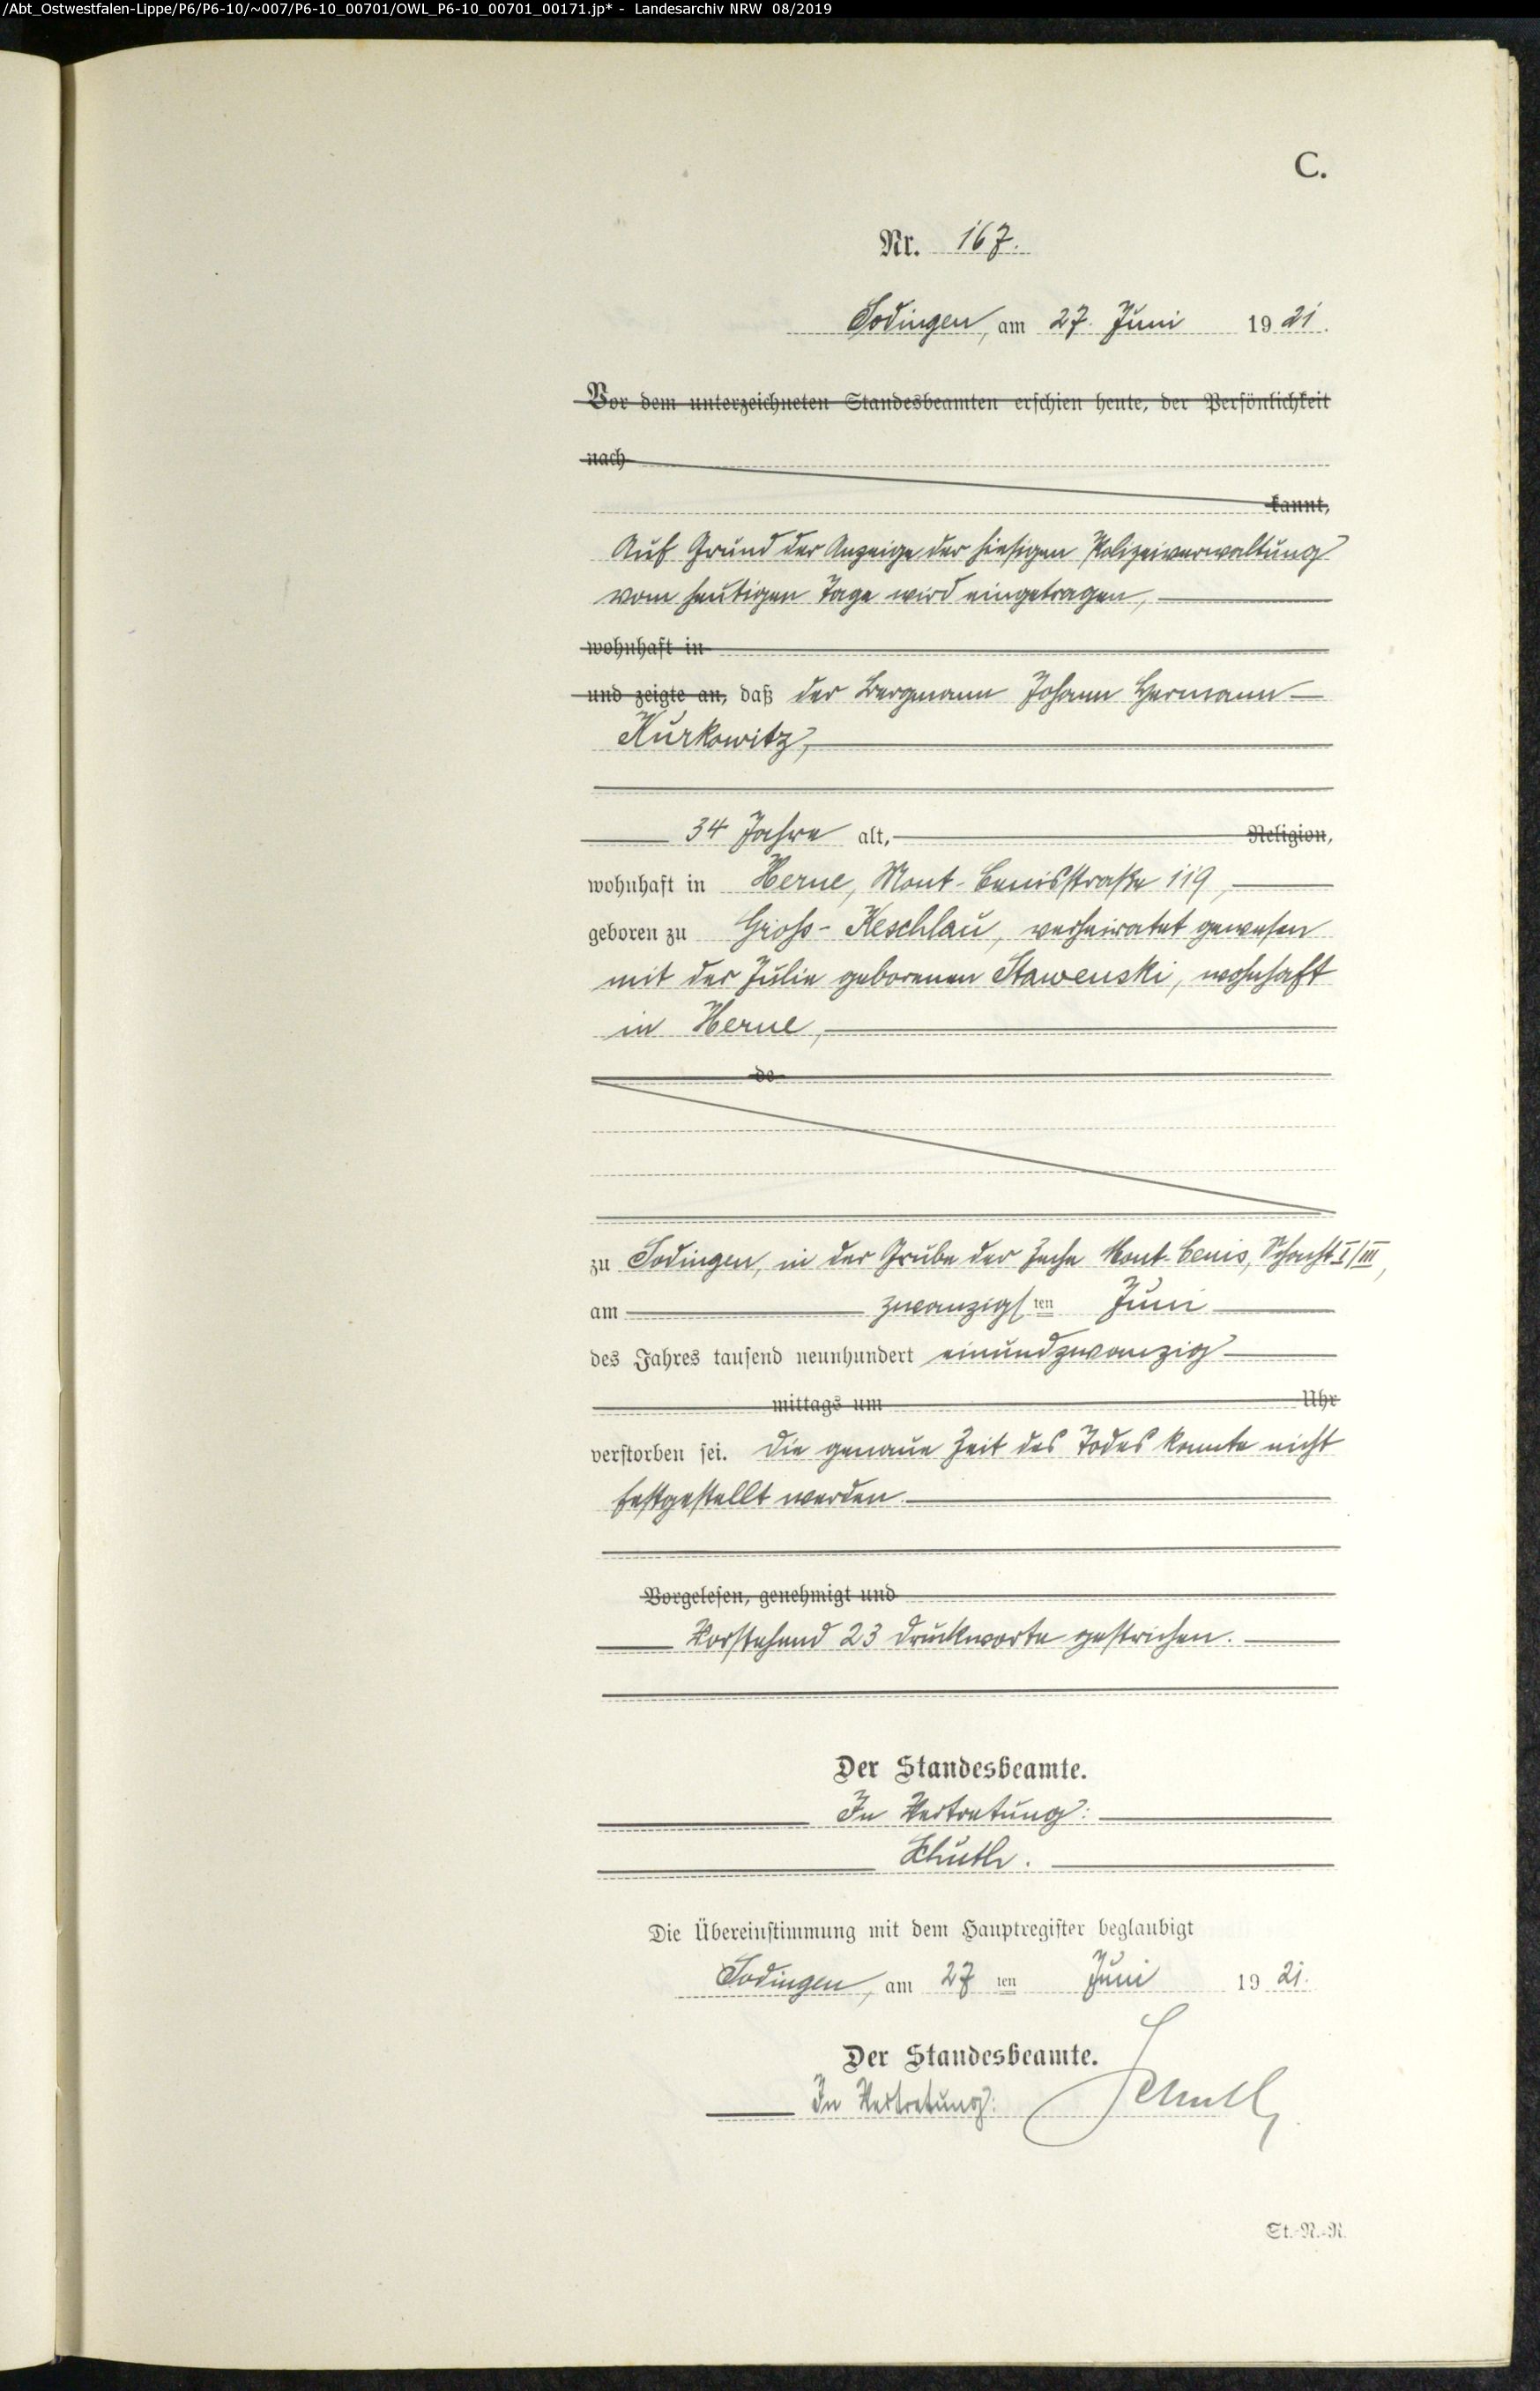 /Abt_Ostwestfalen-Lippe/P6/P6-10/~007/P6-10_00701/OWL_P6-10_00701_00171.jp* - Landesarchiv NRW 08/2019
C.
Nr. 167.
Sodingen, am 27. Juni 1921.
Vor dem unterzeichneten Standesbeamten erschien heute, der Persönlichkeit
nach
kannt,
Auf Grund der Anzeige der hiesigen Polizeiverwaltung
vom heutigen Tage wird eingetragen,
wohnhaft in
und zeigte an, daß der Bergmann Johann Hermann
Kurkowitz,
34 Jahre alt, Religion,
wohnhaft in Herne, Mont-Cenisstraße 119,
geboren zu Groß-Keschlau, verheiratet gewesen
mit der Julie geborenen Stawenski, wohnhaft
in Herne,
de
zu Sodingen, in der Grube der Zeche Mont-Cenis, Schacht I/III,
am zwanzigsten Juni
des Jahres tausend neunhundert einundzwanzig
mittags um Uhr
verstorben sei. Die genaue Zeit des Todes konnte nicht
festgestellt werden.
Vorgelesen, genehmigt und
Vorstehend 23 Druckworte gestrichen.
Der Standesbeamte.
In Vertretung:
Die Übereinstimmung mit dem Hauptregister beglaubigt
Sodingen, am 27 ten Juni 1921.
Der Standesbeamte.
In Vertretung:
St.-N.-R.